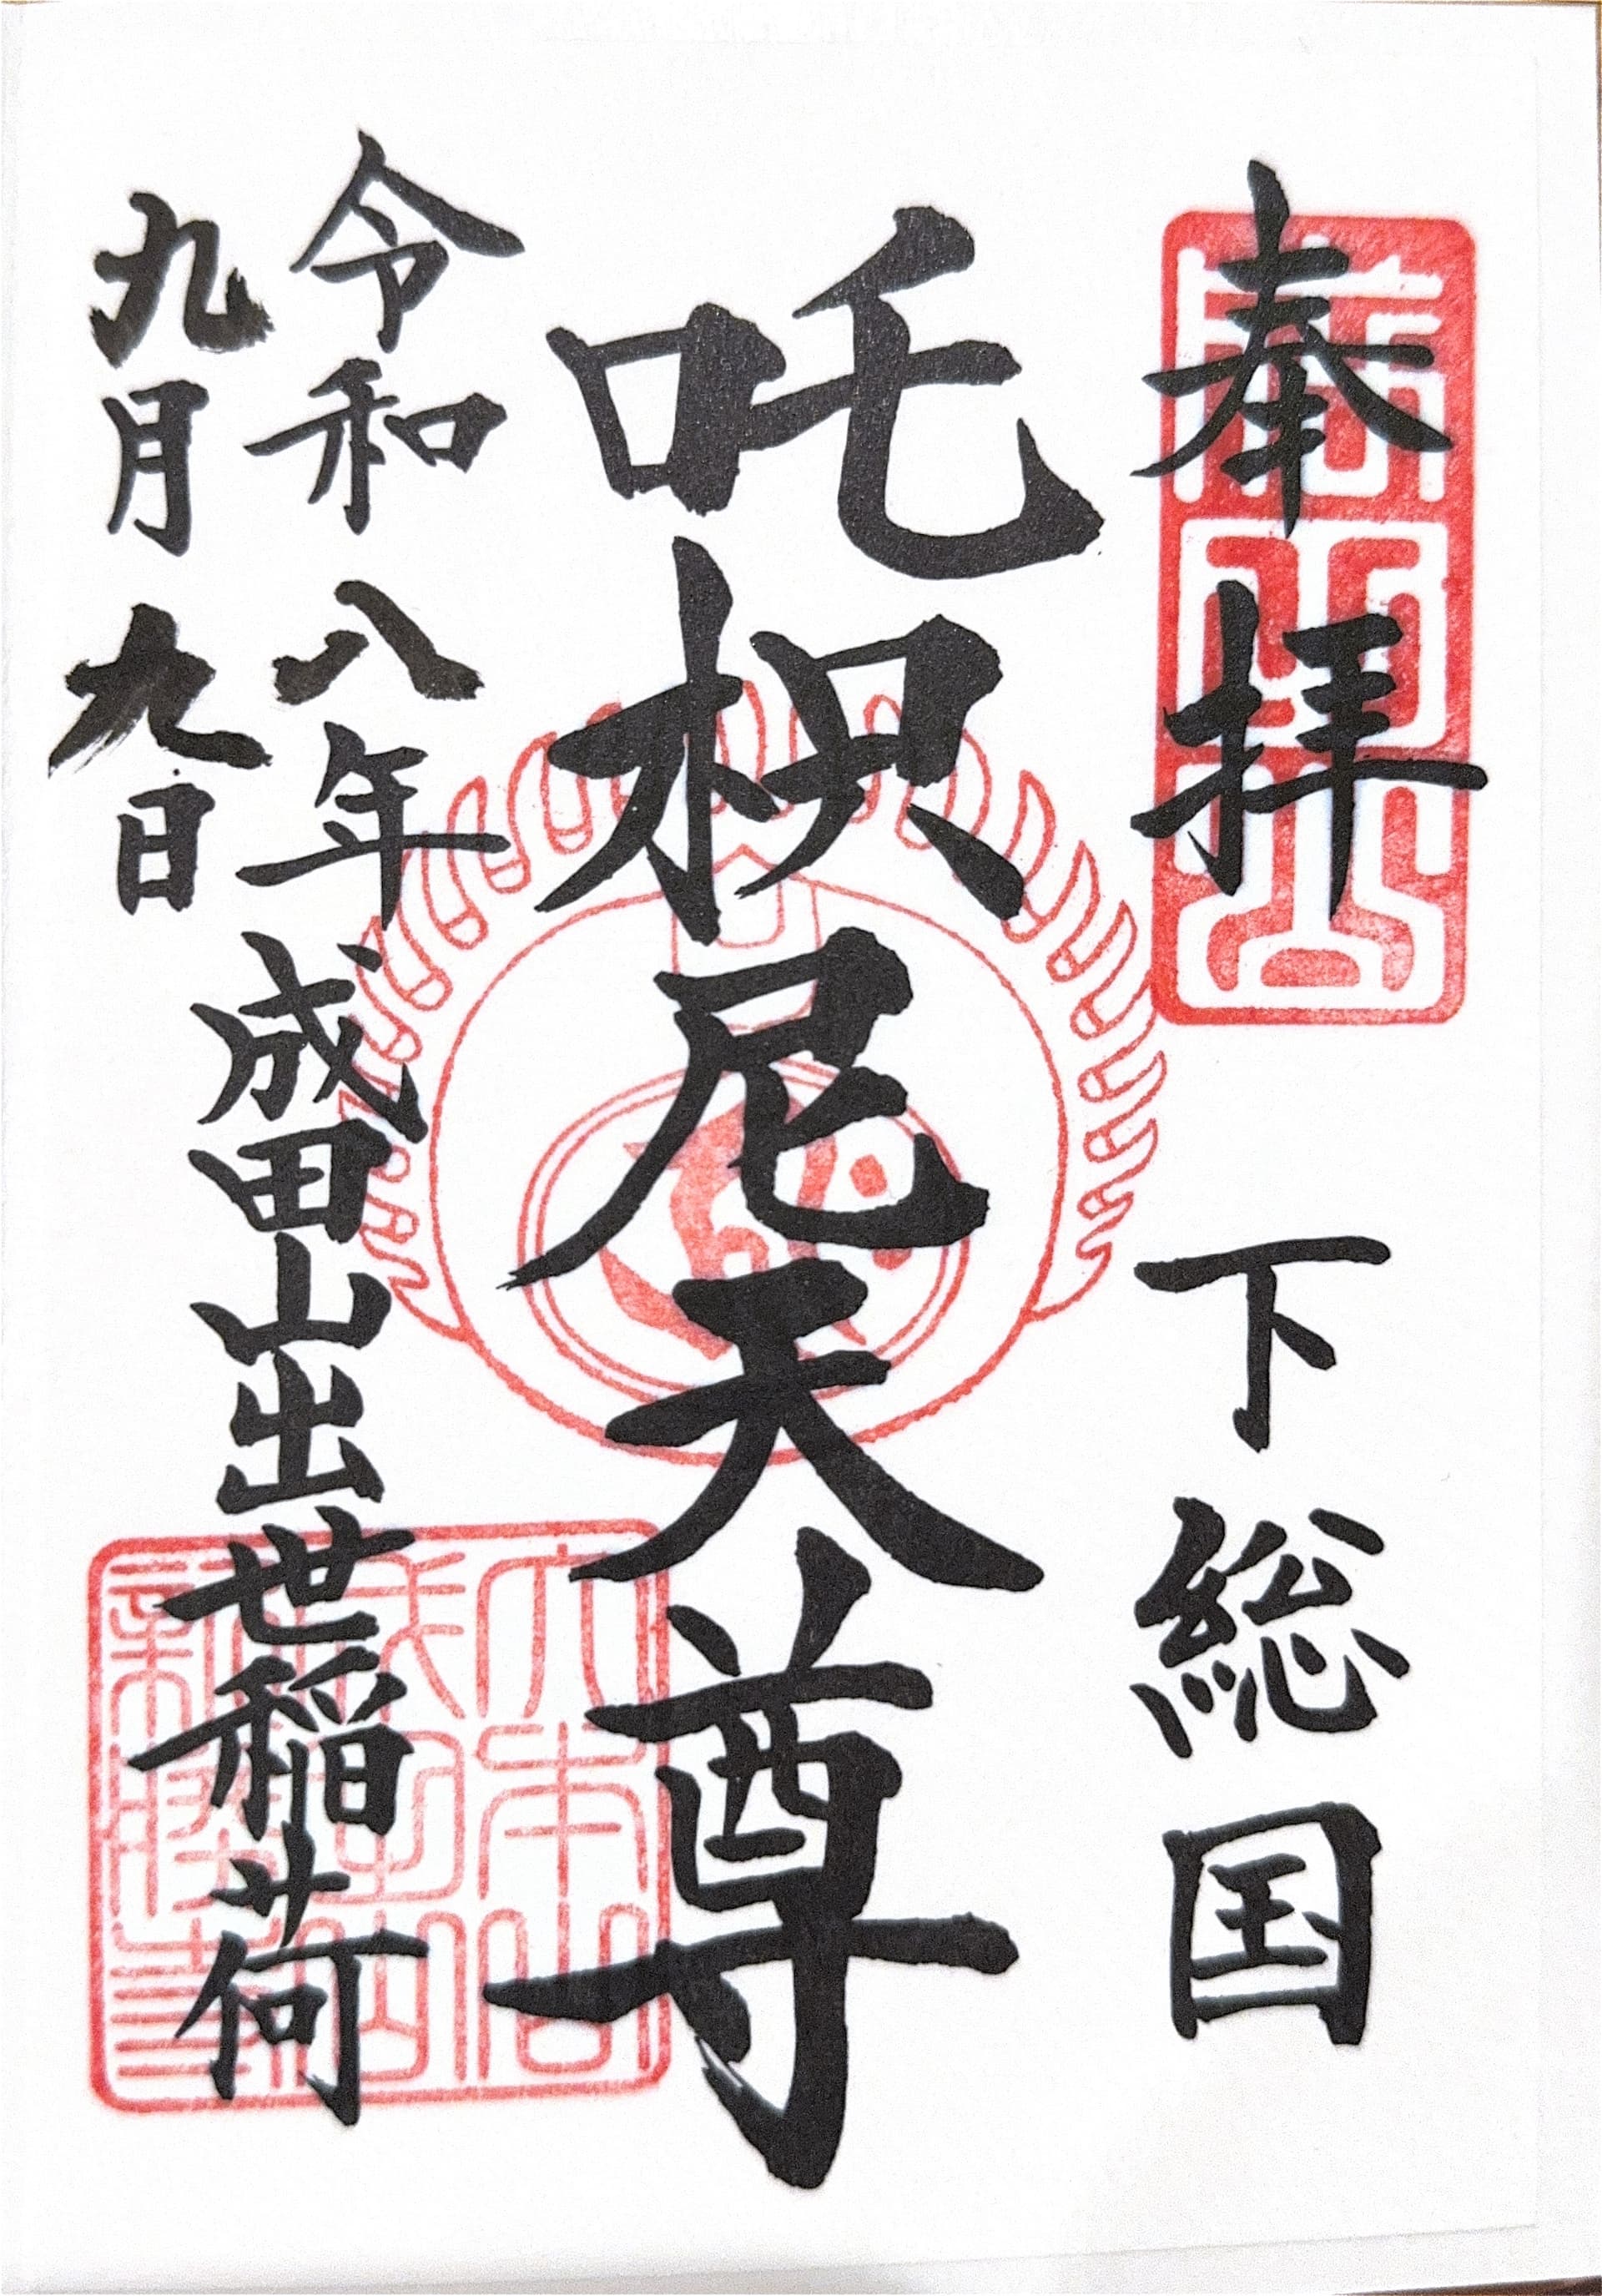 奉拝
下総国
吒枳尼天尊
令和八年
九月九日
成田山出世稲荷